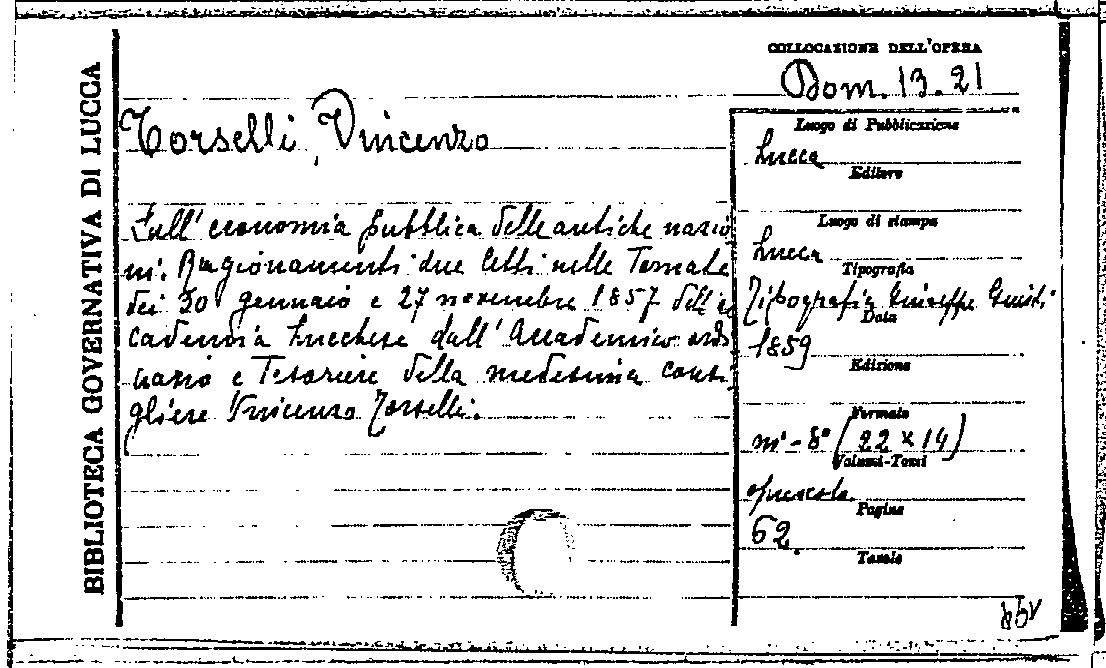 BIBLIOTECA GOVERNATIVA DI LUCCA
COLLOCAZIONE DELL'OPERA
Dom. 13. 21
Torselli, Vincenzo
Sull'economia pubblica delle antiche nazio
ni. Ragionamenti due letti nelle Tornate
dei 30 gennaio e 27 novembre 1857 dell'ac
cademia Lucchese dall'Accademico ordi
nario e Tesoriere della medesima consi
gliere Vincenzo Torselli.
Luogo di Pubblicazione
Lucca
Editore
Luogo di stampa
Lucca
Tipografia
Tipografia Giuseppe Giusti
Data
1859
Edizione
Formato
in-8° (22 x 14)
Volumi-Tomi
opuscolo
Pagine
62.
Tavole